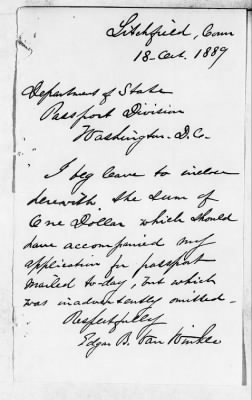 Litchfield, Conn
18 Oct. 1889
Department of State
Passport Division
Washington. D.C.
I beg leave to inclose
herewith the sum of
One Dollar which should
have accompanied my
application for passport
mailed to-day, but which
was inadvertently omitted.
Respectfully
Edgar B. Van Winkle